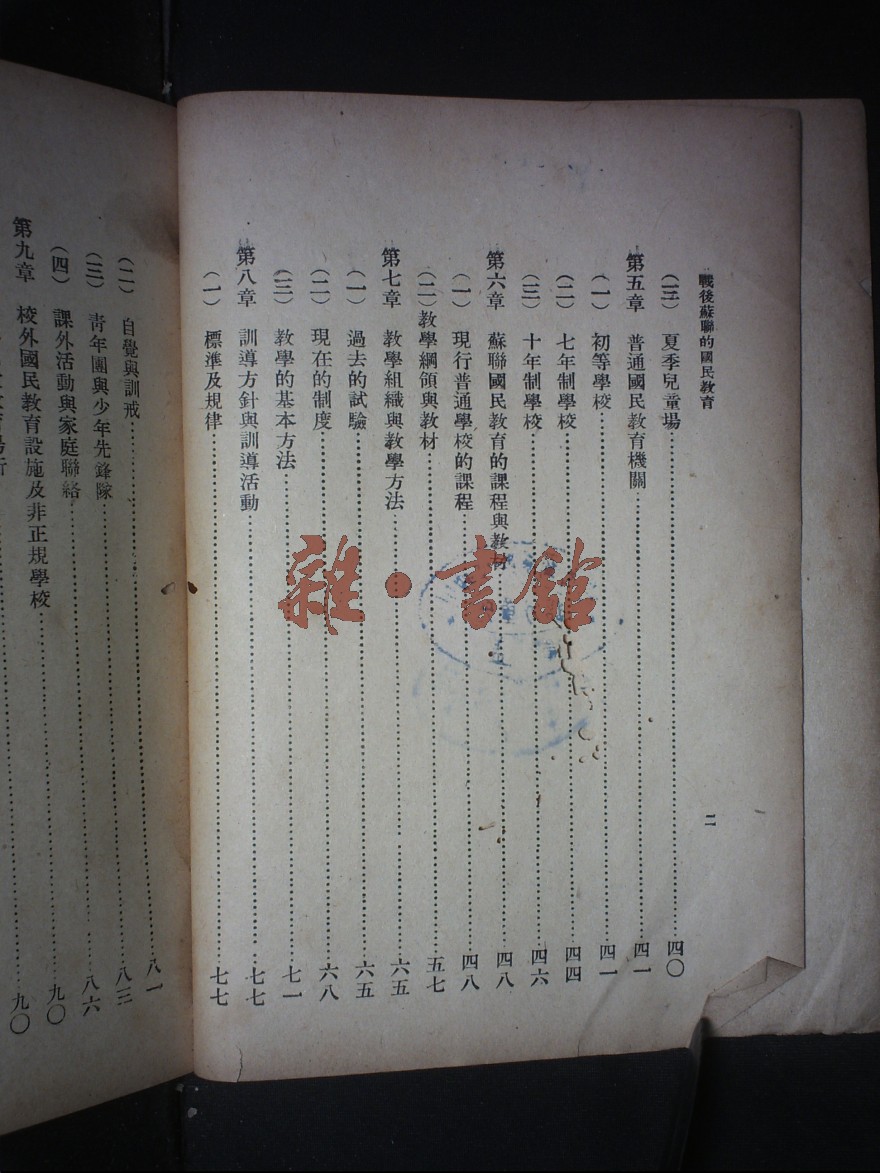 戰後蘇聯的國民教育
二
（三）　夏季兒童場……四〇
第五章　普通國民教育機關……四一
（一）　初等學校……四一
（二）　七年制學校……四四
（三）　十年制學校……四六
第六章　蘇聯國民教育的課程與教材……四八
（一）　現行普通學校的課程……四八
（二）教學綱領與教材……五七
第七章　教學組織與教學方法……六五
（一）　過去的試驗……六五
（二）　現在的制度……六八
（三）　教學的基本方法……七一
第八章　訓導方針與訓導活動……七七
（一）　標準及規律……七七
（二）　自覺與訓戒……八一
（三）　靑年團與少年先鋒隊……八三
（四）　課外活動與家庭聯絡……八六
第九章　校外國民教育設施及非正規學校……九〇
九〇
雜·書館